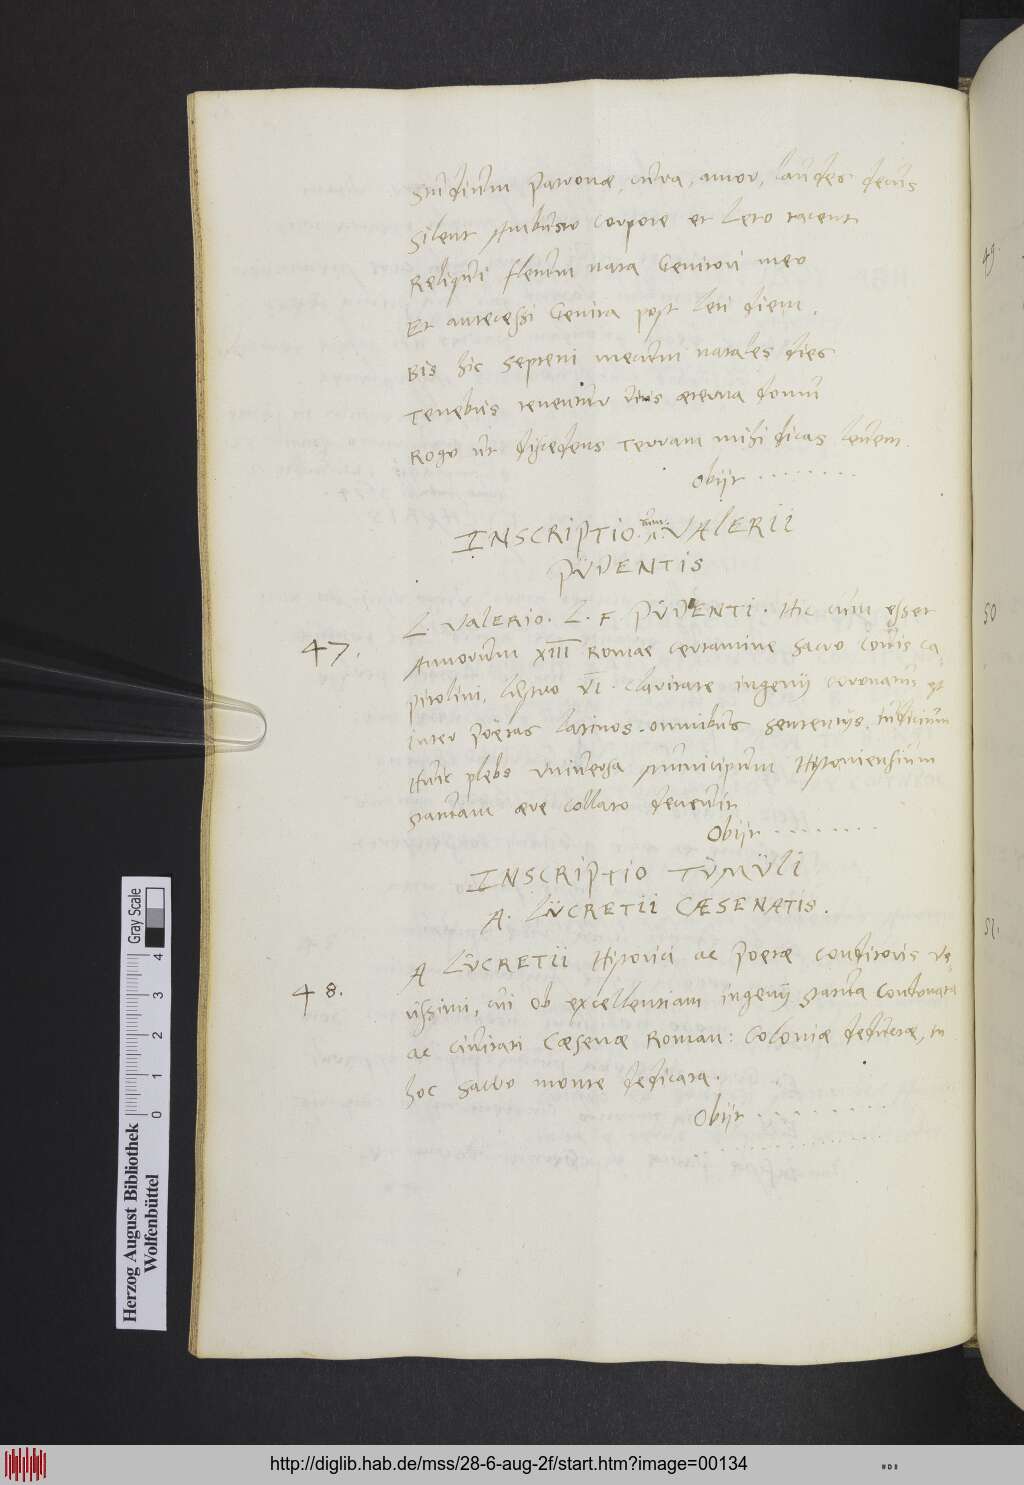 Studium Patronae, cura, amor, laudes decus
Silent Ambusto corpore et Leto tacent
Reliqui fletum nata Genitori meo
Et antecessi Genita post leti diem.
Bis hic septeni mecum natales dies
Tenebris tenentur Ditis aeterna domu
Rogo ut discedens Terram mihi dicas levem.
Obijt . . . . . . . .
INSCRIPTIO VALERII
PUDENTIS
47. L. VALERIO. L. F. PUDENTI. Hic cum esset
Annorum XIII Romae certamine sacro Iovis ca-
pitolini, lustro VI. claritate ingenij coronatus est
inter Poëtas latinos omnibus sententijs Iudicum
Huic plebs universa Municipum Histoniensium
statuam aere collato decrevit
Obijt . . . . . . . .
INSCRIPTIO TUMULI
A. LUCRETII CAESENATIS.
48. A LUCRETII Historici ac Poetae conditoris ve-
rissimi, cui ob excellentiam ingenij statua condonata
ac civitati Caesenae Roman: Coloniae deductae, in
hoc sacro monte dedicata.
Obijt . . . . . . . . .
49.
50
51.
Gray Scale
4
3
2
1
0
Herzog August Bibliothek
Wolfenbüttel
http://diglib.hab.de/mss/28-6-aug-2f/start.htm?image=00134